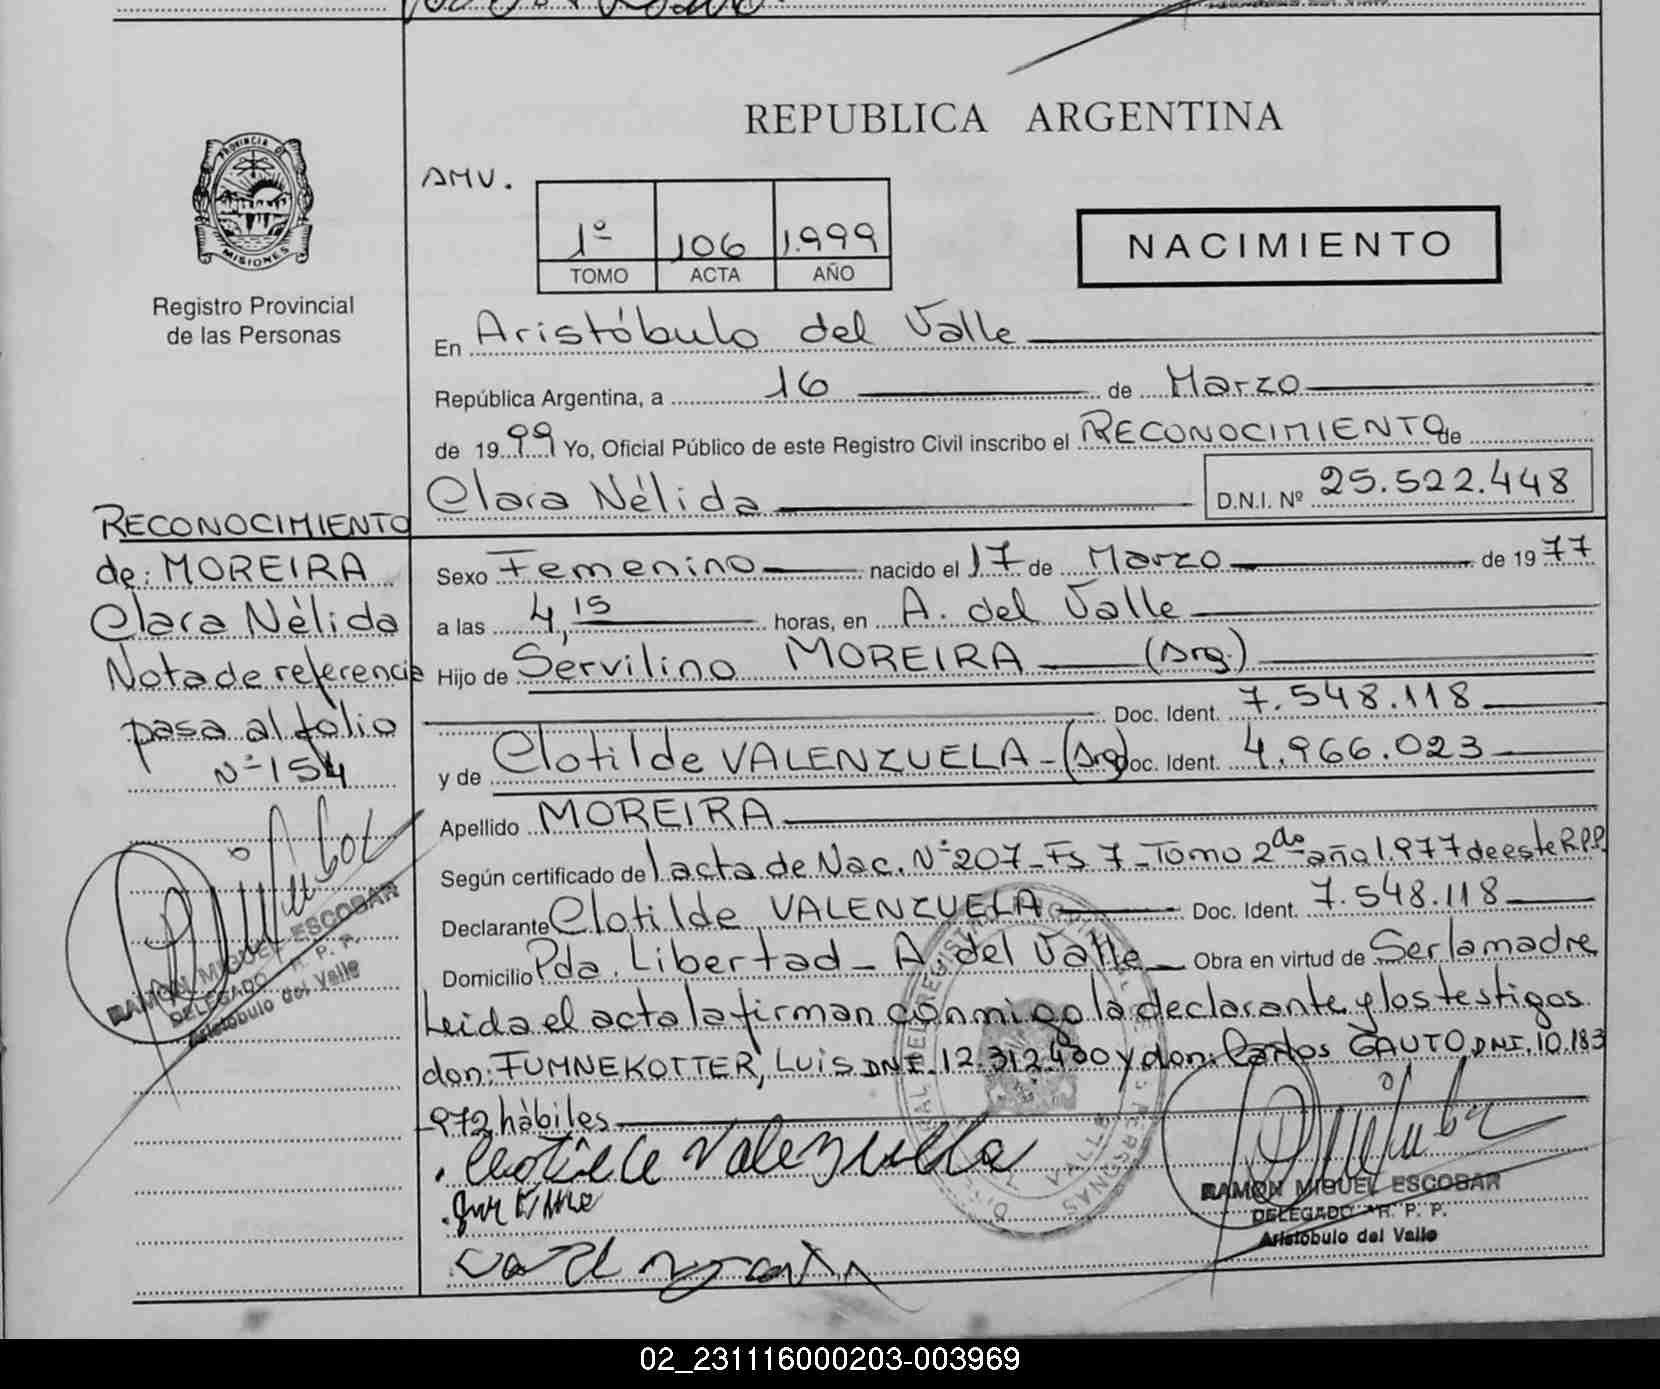 REPUBLICA ARGENTINA
PROVINCIA DE
MISIONES
Registro Provincial
de las Personas
AMV.
1º 106 1.999
TOMO ACTA AÑO
NACIMIENTO
En Aristóbulo del Valle
República Argentina, a 16 de Marzo
de 1999 Yo, Oficial Público de este Registro Civil inscribo el RECONOCIMIENTO de
Clara Nélida D.N.I. Nº 25.522.448
RECONOCIMIENTO
de: MOREIRA
Clara Nèlida
Nota de referencia
pasa al fólio
Nº 154
RAMON MIGUEL ESCOBAR
DELEGADO R. P. P.
Aristóbulo del Valle
Sexo Femenino nacido el 17 de Marzo de 1977
a las 4,15 horas, en A. del Valle
Hijo de Servilino MOREIRA (Arg.)
Doc. Ident. 7.548.118
y de Clotilde VALENZUELA - (Arg) Doc. Ident. 4.966.023
Apellido MOREIRA
Según certificado de l acta de Nac. Nº 207 - Fs 7 - Tomo 2do - año 1.977 de este R.P.P.
Declarante Clotilde VALENZUELA Doc. Ident. 7.548.118
Domicilio Pda. Libertad - A. del Valle Obra en virtud de Ser la madre
Leida el acta la firman conmigo la declarante y los testigos.
don: FUMNEKOTTER, LUIS DNI. 12.312.400 y don: Carlos GAUTO, DNI. 10.183
972 hàbiles
Clotilde Valenzuella
RAMON MIGUEL ESCOBAR
DELEGADO R. P. P.
Aristóbulo del Valle
02_231116000203-003969